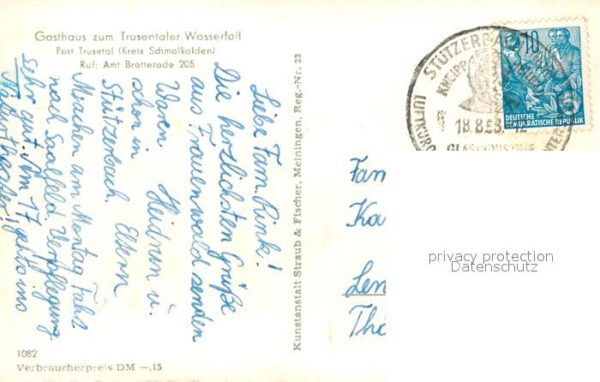 Gasthaus zum Trusentaler Wasserfall
Post Trusetal (Kreis Schmalkalden)
Ruf: Amt Brotterode 205
Liebe Fam. Rink!
Die herzlichsten Grüße
aus Frauenwald senden
Heidrun u.
Waren Eltern
schon in Stützerbach.
Machen am Montag Fahrt
nach Saalfeld. Verpflegung
sehr gut. Am 17. gehts ins
Naturtheater.
Kunstanstalt Straub & Fischer, Meiningen, Reg.-Nr. 23
1082
Verbraucherpreis DM —,15
STÜTZERBACH
KNEIPP
LUFTKURORT
18.8.58.-12
10
DEUTSCHE
DEMOKRATISCHE REPUBLIK
Fam
Ka
Len
Thä
privacy protection
Datenschutz